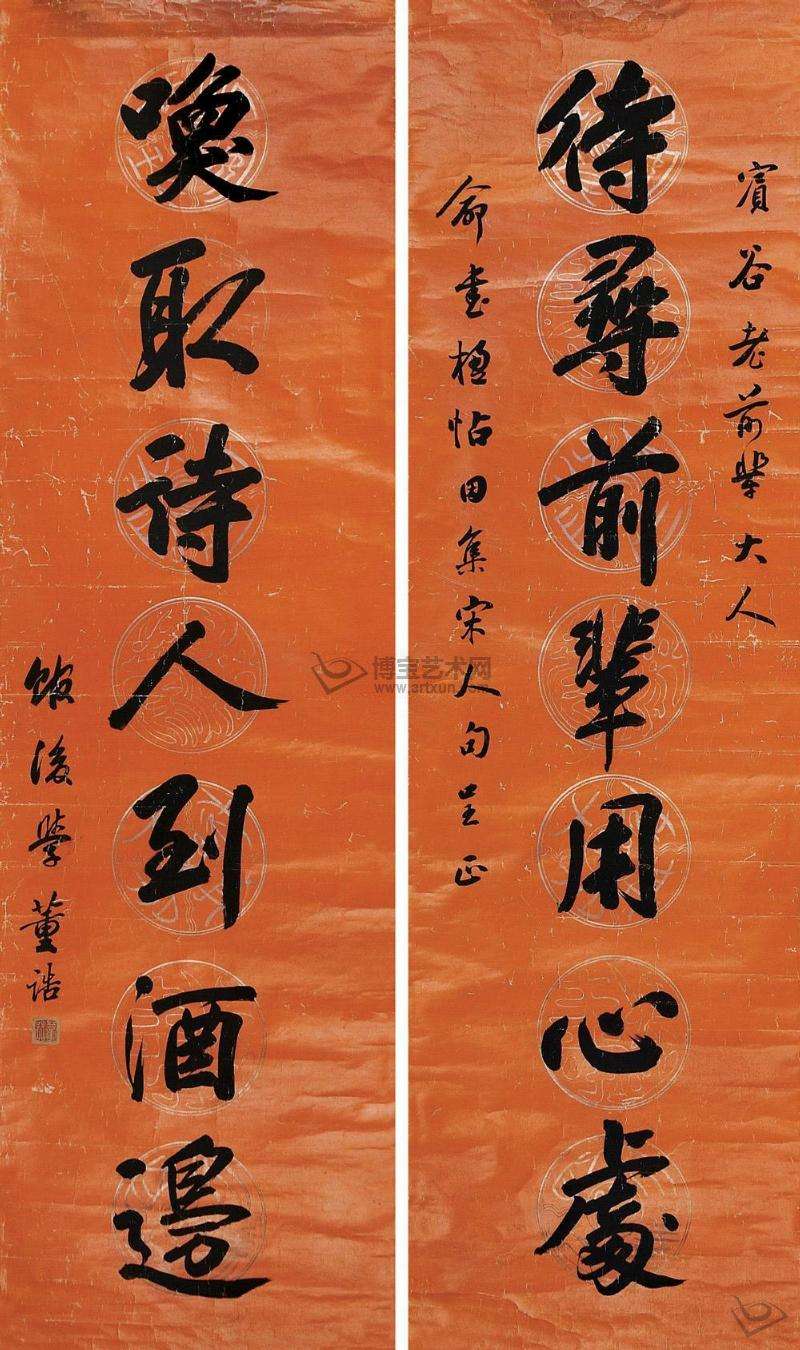 賓谷老前輩大人
待尋前輩用心處
命書楹帖因集宋人句呈正
喚取詩人到酒邊
館後學董誥
博宝艺术网
www.artxun.